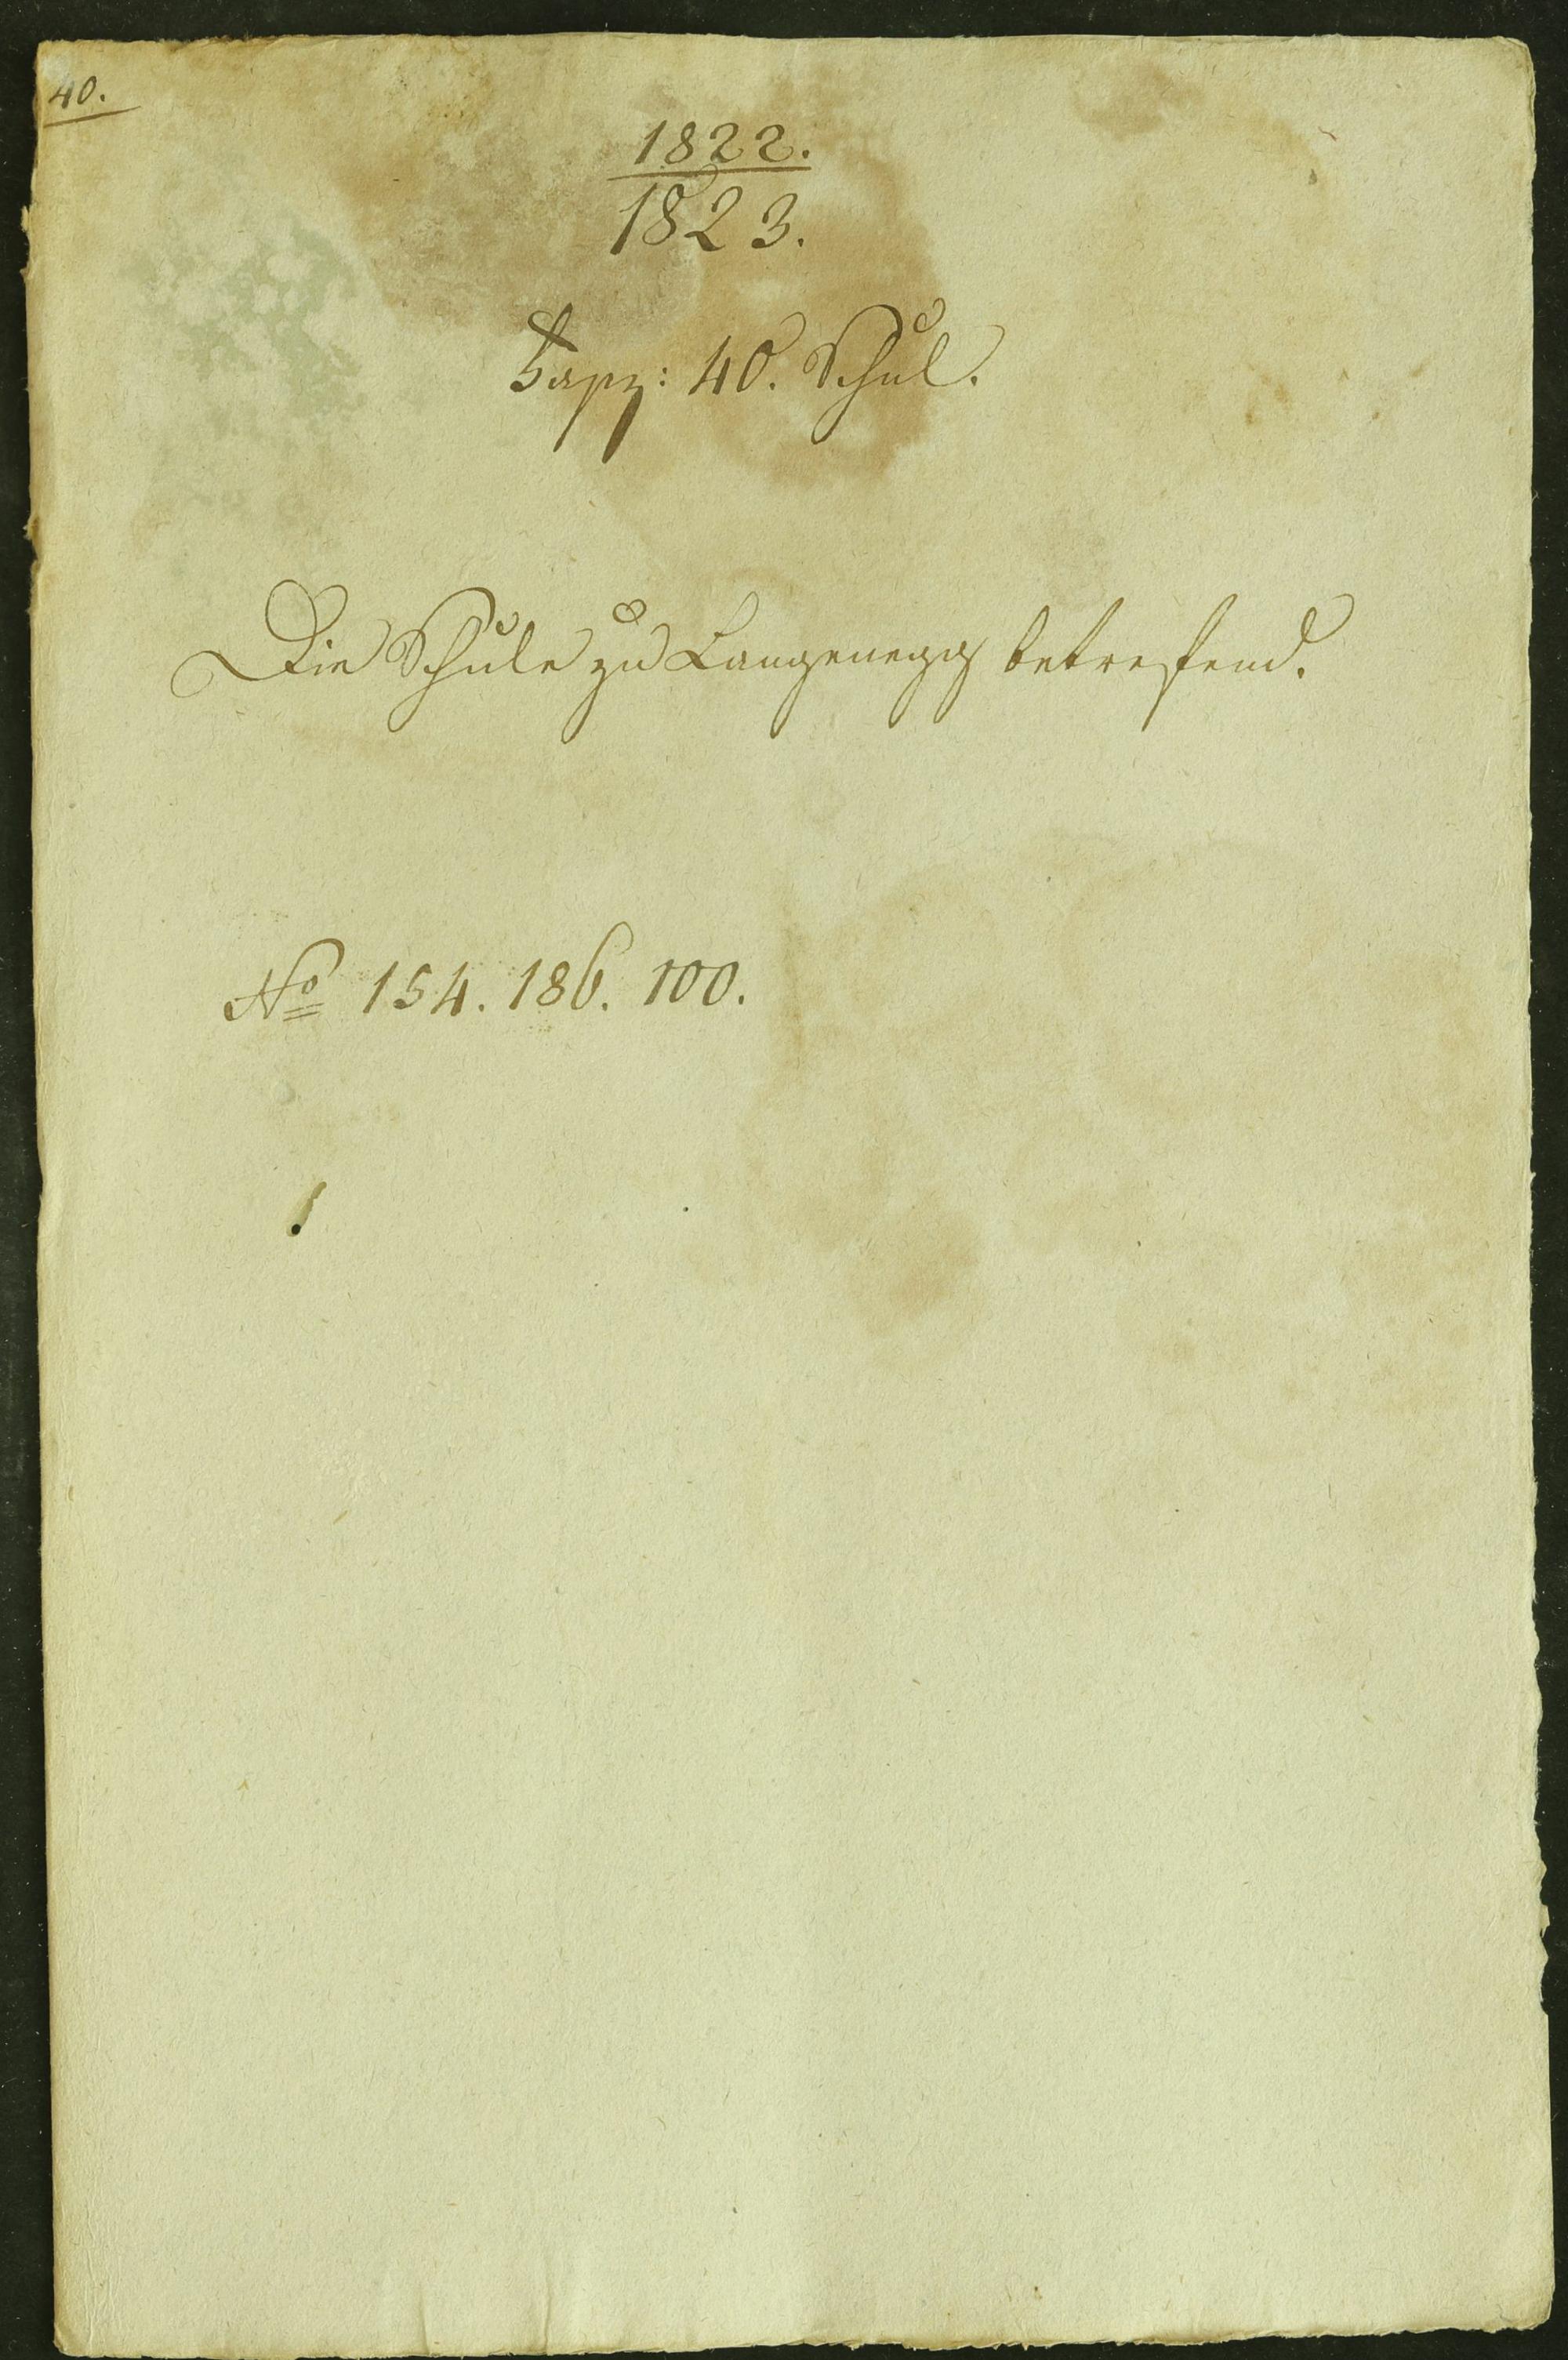 40.
1822.
1823.
Fasz: 40. Schul.
Die Schule zu Langenegg betrefend.
No 154. 186. 100.